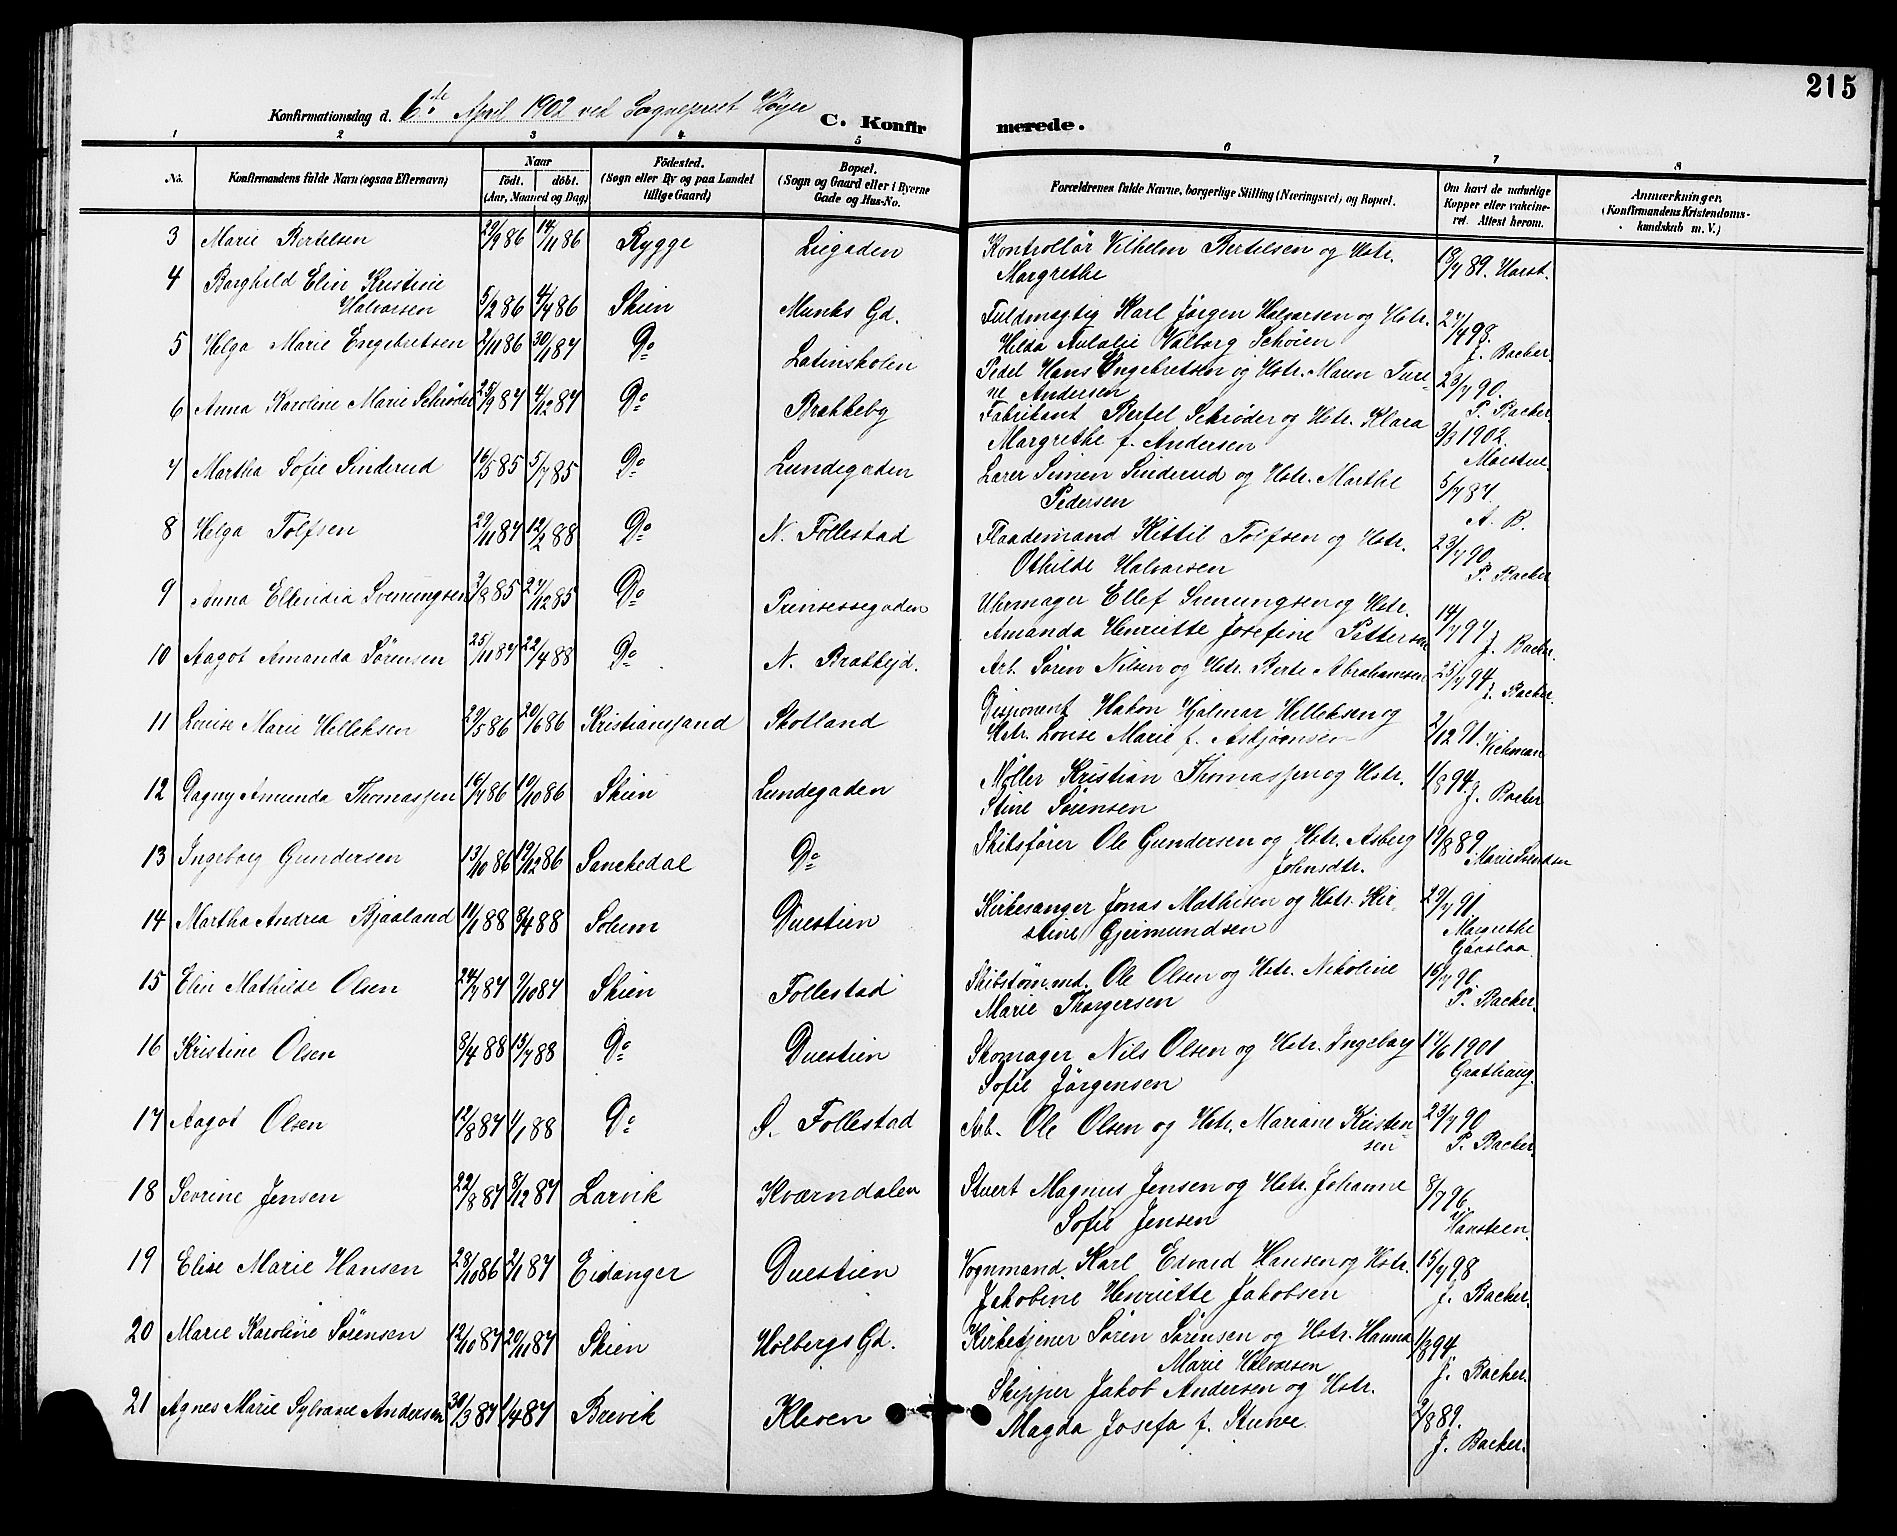 215
Konfirmationsdag d. 6te April 1902 ved Sogneprest Høyer
C. Konfirmerede.
1 2 3 4 5 6 7 8
No. Konfirmandens fulde Navn (ogsaa Efternavn) Naar födt. döbt. (Aar, Maaned og Dag) Födested. (Sogn eller By og paa Landet tillige Gaard) Bopæl. (Sogn og Gaard eller i Byerne Gade og Hus-No. Forældrenes fulde Navne, borgerlige Stilling (Næringsvei) og Bopæl. Om havt de naturlige Kopper eller vakcineret. Attest herom. Anmærkninger. (Konfirmandens Kristendomskundskab m. V.)
3 Marie Bertelsen 29/9 86 14/11 86 Rygge Liegaden Kontrollør Vilhelm Bertelsen og Hstr. 18/7 89. Horst.
Margrethe
4 Borghild Elin Kristine
Halvorsen 5/2 86 4/4 86 Skien Munks Gd. Fuldmægtig Karl Jørgen Halvorsen og Hstr. 27/4 98.
Hilda Aulalie Valborg Schøien J. Backer.
5 Helga Marie Engebretsen 2/11 86 30/1 87 Do Latinskolen Pedel Hans Engebretsen og Hstr. Maren Turi- 23/7 90.
ne Andersen P. Backer
6 Anna Karoline Marie Schrøder 25/9 87 4/12 87 Do Brekkeby Fabrikant Bertel Schrøder og Hstr. Klara 3/3 1902.
Margrethe f. Andersen
7 Martha Sofie Sinderud 16/5 85 5/7 85 Do Lundegaden Lærer Simen Sinderud og Hstr. Marthe 5/7 87.
Pedersen A. B.
8 Helga Tolfsen 29/11 87 12/2 88 Do N. Follestad Flaademand Kittil Tolfsen og Hstr. 23/7 90
Othilde Halvorsen P. Backer
9 Anna Ellevidia Svenningsen 3/8 85 27/12 85 Do Prinsessegaden Uhrmager Ellef Svenningsen og Hstr. 14/7 97
Amanda Henriette Josefine Pettersen J. Backer.
10 Aagot Amanda Sørensen 25/11 87 22/4 88 Do N. Brekkejd. Arb. Søren Nilsen og Hstr. Berte Abrahamsen 25/7 94
J. Backer.
11 Louise Marie Helleksen 29/5 86 20/6 86 Kristianssand Skotland Disponent Hakon Hjalmar Helleksen og
Hstr. Louise Marie f. Asbjørnsen 2/12 91. Vichman
12 Dagny Amunda Thomassen 16/7 86 10/10 86 Skien Lundegaden Møller Kristian Thomassen og Hstr. 1/8 94
Stine Sørensen J. Backer
13 Ingeborg Gundersen 13/10 86 19/12 86 Sanekedal Do Skibsfører Ole Gundersen og Hstr. Asberg 19/8 89
Johnsdtr. Marie Svendsen
14 Martha Andrea Bjaaland 11/1 88 8/4 88 Solum Duestien Kirkesanger Jonas Mathisen og Hstr. Kir- 29/7 91
stine Gjermundsen Margrethe
15 Elin Mathilde Olsen 24/7 87 9/10 87 Skien Follestad Skibstømmd. Ole Olsen og Hstr. Nikoline 16/7 90.
Marie Thorgersen P. Backer.
16 Kristine Olsen 8/4 88 15/7 88 Do Duestien Skomager Nils Olsen og Hstr. Ingeborg 17/6 1901
Sofie Jørgensen Gaathaug.
17 Aagot Olsen 12/8 87 1/1 88 Do Ø. Follestad Arb. Ole Olsen og Hstr. Mariane Kristen- 23/7 90
sen P. Backer.
18 Sevrine Jensen 22/8 87 8/12 87 Larvik Kværndalen Stuert Magnus Jensen og Hstr. Johanne 8/7 96.
Sofie Jensen Hansteen.
19 Elise Marie Hansen 28/10 86 2/1 87 Eidanger Duestien Vognmand. Karl Edvard Hansen og Hstr. 15/7 98
Jakobine Henriette Jakobsen J. Backer.
20 Marie Karoline Sørensen 12/10 87 20/11 87 Skien Holbergs Gd. Kirketjener Søren Sørensen og Hstr. Hanna 1/8 94
Marie Halvorsen J. Backer.
21 Agnes Marie Sylvane Andersen 30/3 87 1/4 87 Brevik Kleven Skipper Jakob Andersen og Hstr.
Magda Josefa f. Stuwe 2/8 89.
J. Backer.